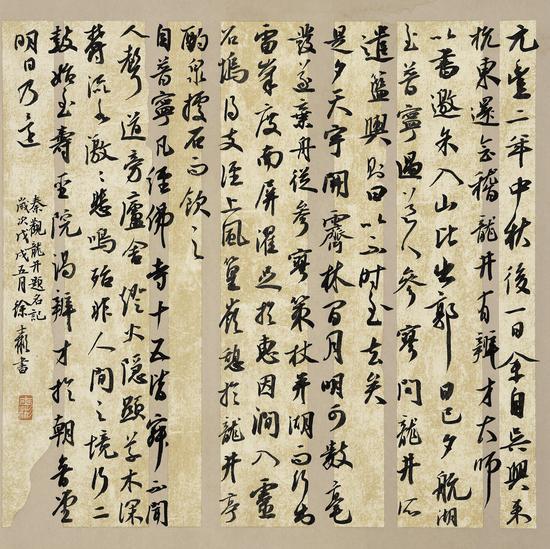 元豐二年中秋後一日余自吳興來
杭東還會稽龍井有辯才大師
以書邀余入山比出郭日已夕航湖
至普寧遇道人參寥問龍井所
遣籃輿則曰以不時至去矣
是夕天宇開霽林間月明可數毫
髮遂棄舟從參寥策杖並湖而行出
雷峯度南屏濯足於惠因澗入靈
石塢得支徑上風篁嶺憩於龍井亭
酌泉據石而飲之
自普寧凡經佛寺十五皆寂不聞
人聲道旁廬舍燈火隱顯草木深
鬱流水激〻悲鳴殆非人間之境行二
鼓始至壽聖院謁辯才於朝音堂
明日乃還
秦觀龍井題名記
歲次戊戌五月徐書